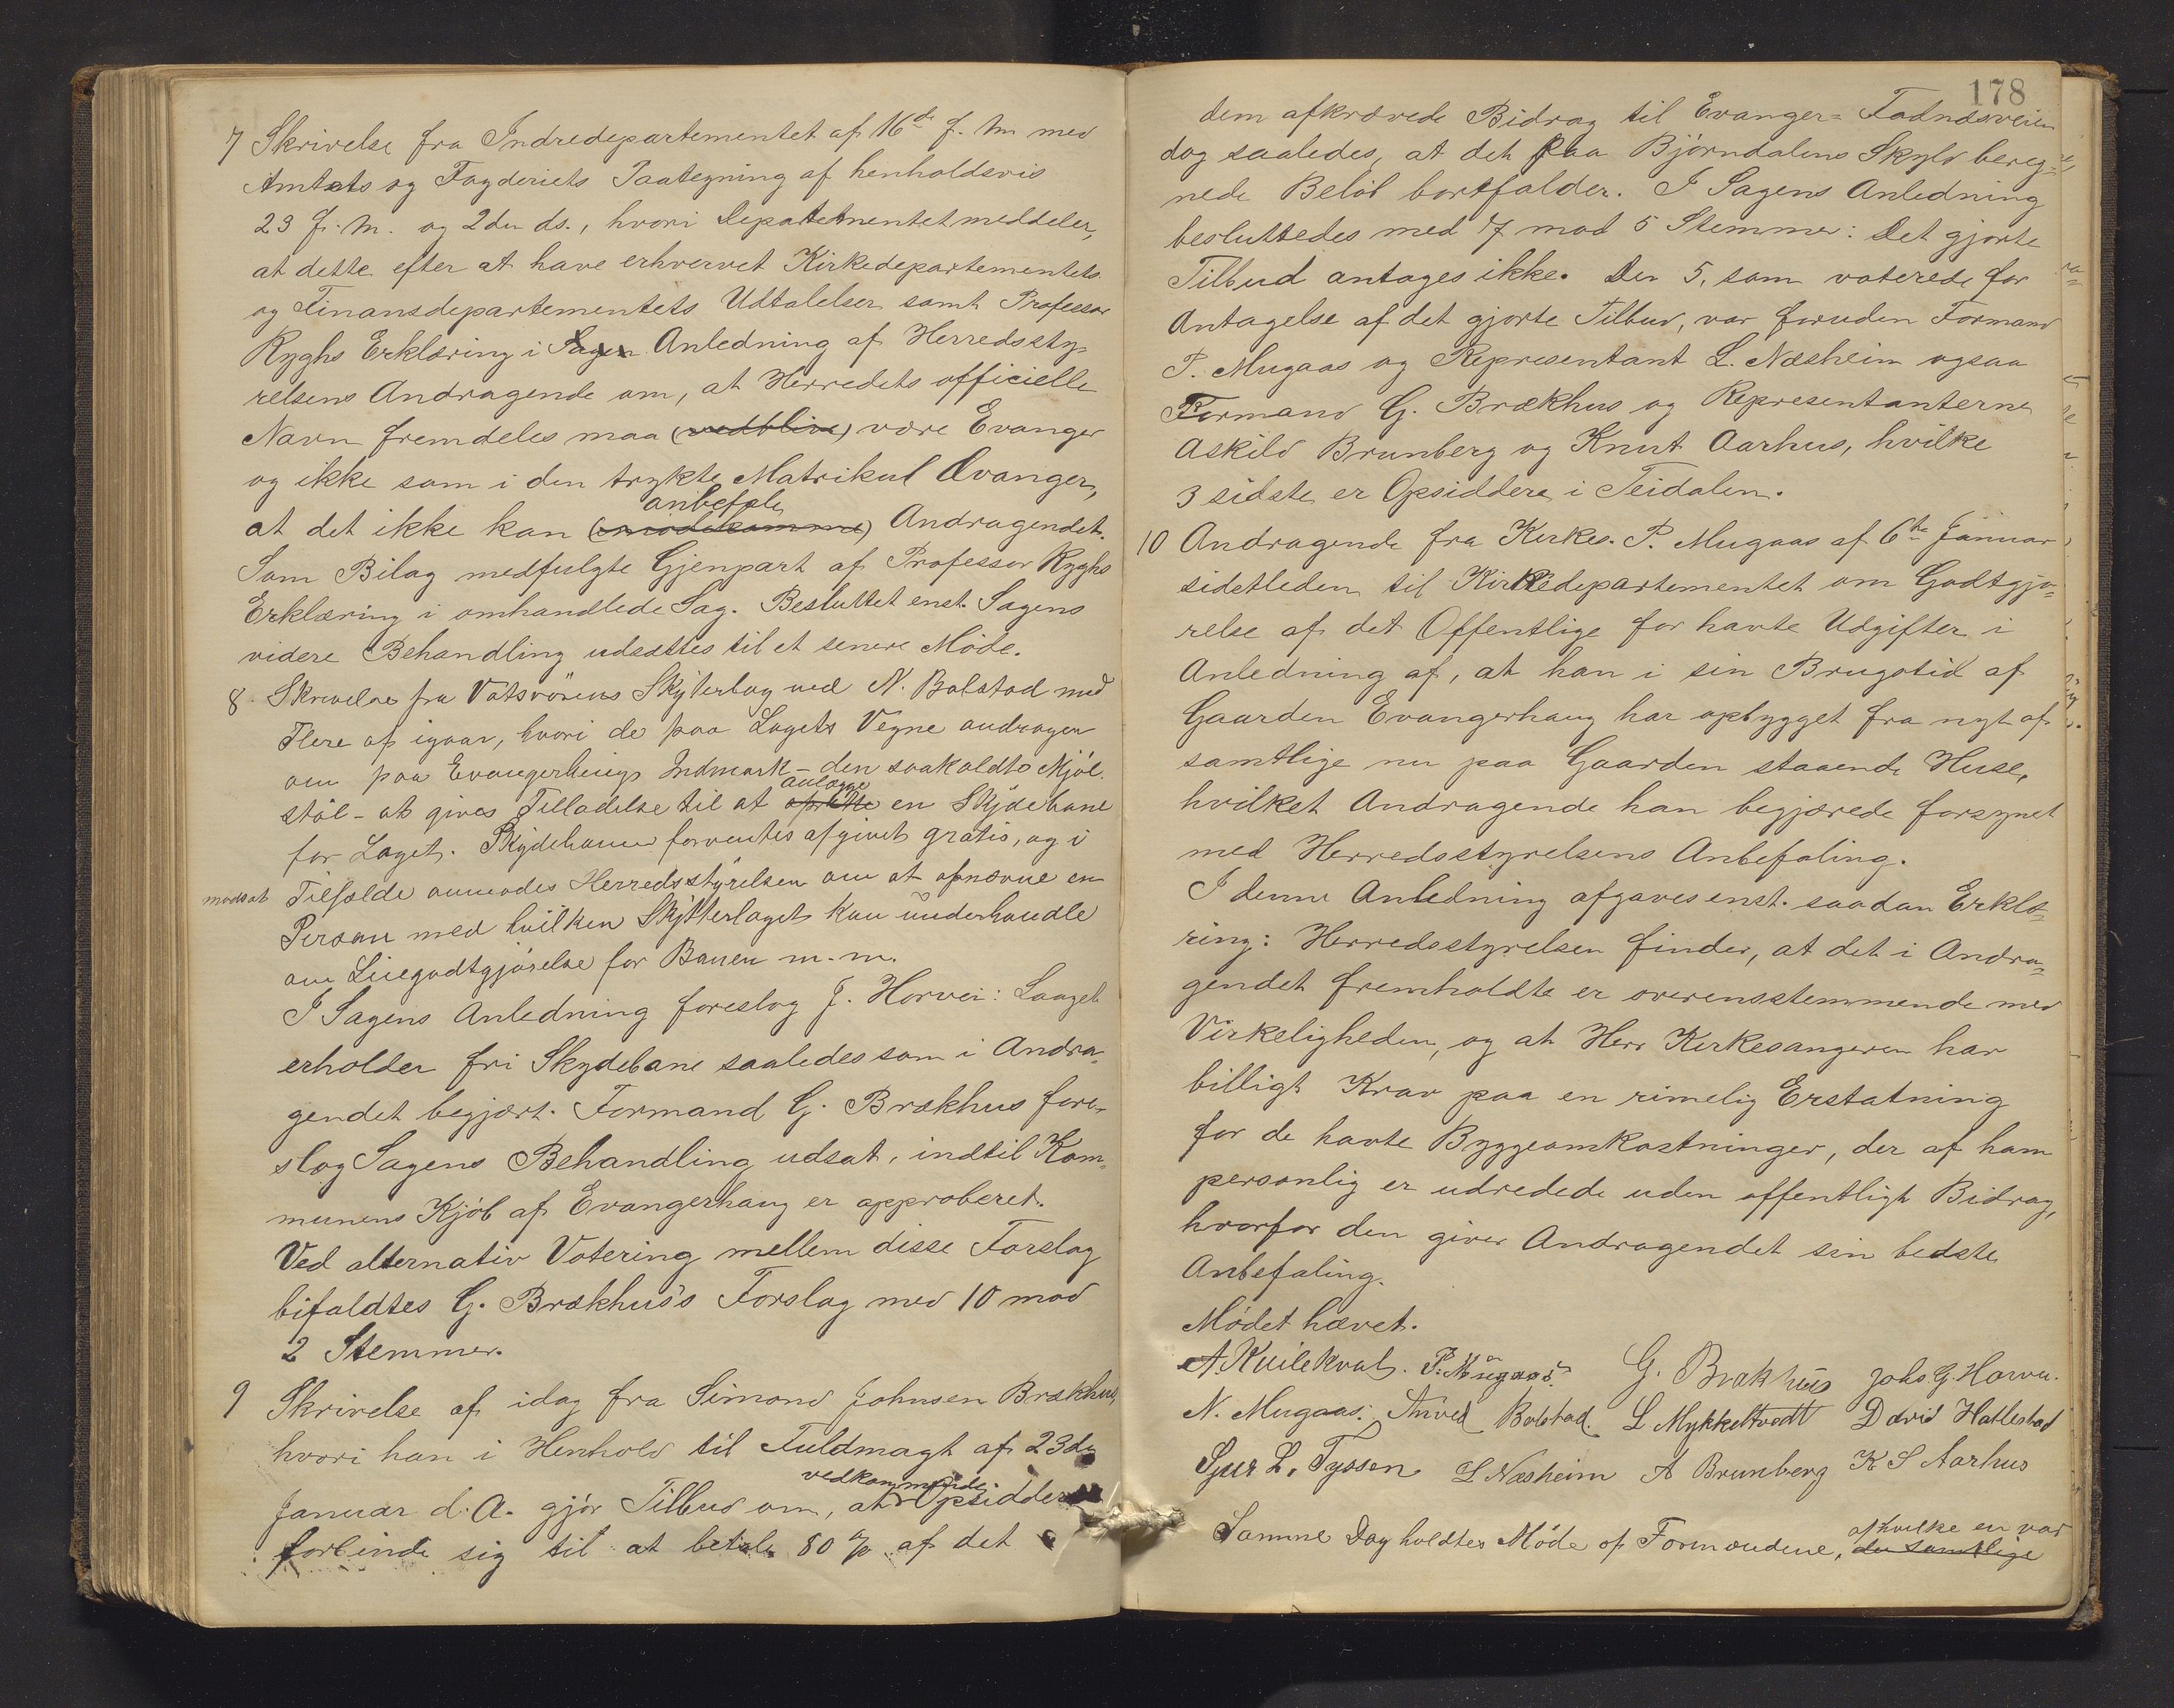 7 Skrivelse fra Indredepartementet af 16de f. M. med
Amtets og Fogderiets Paategning af henholdsvis
23 f. M. og 2den ds., hvori Departementet meddeler,
at dette efter at have erhvervet Kirkedepartementets
og Finansdepartementets Udtalelser samt Professor
Ryghs Erklæring i Sagen Anledning af Herredssty-
relsens Andragende om, at Herredets officielle
Navn fremdeles maa (vedblive) være Evanger
og ikke som i den trykte Matrikul Ævanger,
anbefale
at det ikke kan (imødekomme) Andragendet.
Som Bilag medfulgte Gjenpart af Professor Ryghs
Erklæring i omhandlede Sag. Besluttet enst. Sagens
videre Behandling udsættes til et senere Møde.
8 Skrivelse fra Vatsvörens Skytterlag ved N. Bolstad med
Flere af igaar, hvori de paa Lagets Vegne andrager
om paa Evangerhaugs Indmark - den saakaldte Mjöl-
anlægge
stöl - at gives Tilladelse til at oprette en Skydebane
for Laget. Skydebanen forventes afgivet gratis, og i
modsat Tilfælde anmodes Herredsstyrelsen om at opnævne en
Person med hvilken Skytterlaget kan underhandle
om Leiegodtgjörelse for Banen m. m.
I Sagens Anledning foreslog J. Horvei: Laaget
erholder fri Skydebane saaledes som i Andra-
gendet begjært. Formand G. Brækhus fore-
slog Sagens Behandling udsat, indtil Kom-
munens Kjöb af Evangerhaug er approberet.
Ved alternativ Votering mellem disse Forslag
bifaldtes G. Brækhus's Forslag med 10 mod
2 Stemmer.
9 Skrivelse af idag fra Simond Johnsen Brækhus,
hvori han i Henhold til Fuldmagt af 23de
vedkommende
Januar d. A. gjör Tilbud om, at Opsiddere
forbinde sig til at betale 80 % af det
178
dem afkrævede Bidrag til Evanger= Fadnæsveien
dog saaledes, at det paa Bjørndalens Skyld bereg-
nede Belöb bortfalder. I Sagens Anledning
besluttedes med 7 mod 5 Stemmer: Det gjorte
Tilbud antages ikke. De 5, som voterede for
Antagelse af det gjorte Tilbud, var foruden Formand
P. Mugaas og Repræsentant L. Næsheim ogsaa
Formand G. Brækhus og Repræsentanterne
Askild Brunberg og Knut Aarhus, hvilke
3 sidste er Opsiddere i Teidalen.
10 Andragende fra Kirkes. P. Mugaas af 6te Januar
sidstleden til Kirkedepartementet om Godtgjø=
relse af det Offentlige for havte Udgifter i
Anledning af, at han i sin Brugstid af
Gaarden Evangerhaug har opbygget fra nyt af
samtlige nu paa Gaarden staaende Huse,
hvilket Andragende han begjærede forsynet
med Herredsstyrelsens Anbefaling.
I denne Anledning afgaves enst. saadan Erklæ=
ring: Herredsstyrelsen finder, at det i Andra=
gendet fremholdte er overensstemmende med
Virkeligheden, og at Herr Kirkesangeren har
billigt Krav paa en rimelig Erstatning
for de havte Byggeomkostninger, der af ham
personlig er udredede uden offentligt Bidrag,
hvorfor den giver Andragendet sin bedste
Anbefaling.
Mødet hævet.
A. Kvilekval. P. Mugaas. G. Brækhus Johs. G. Horvei.
N. Mugaas. Anved Bolstad. L Mykkeltvedt David Hatlestad
Sjur L. Tyssen L. Næsheim A Brunberg K S Aarhus
af hvilke en var
Samme Dag holdtes Möde af Formændene, der samtlige